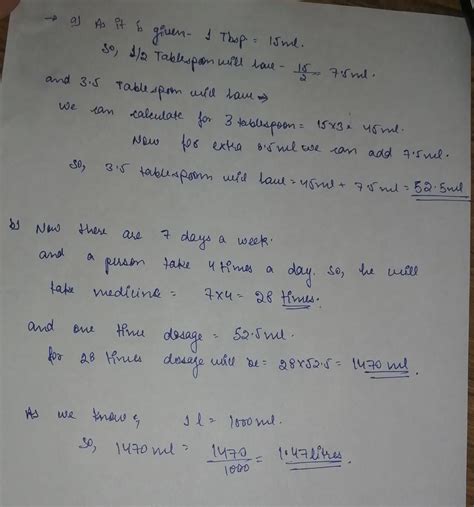 → a) As it is given - 1 Tbsp = 15 ml.
So, 1/2 Tablespoon will have - 15/2 = 7.5 ml.
and 3.5 Tablespoon will have →
we can calculate for 3 tablespoon = 15x3 = 45 ml.
Now for extra 0.5 ml we can add 7.5 ml.
So, 3.5 tablespoon will have = 45 ml + 7.5 ml = 52.5 ml
b) Now there are 7 days a week.
and a person take 4 times a day. So, he will
take medicine = 7x4 = 28 times.
and one time dosage = 52.5 ml.
for 28 times dosage will be = 28x52.5 = 1470 ml
As we know, 1 l = 1000 ml.
So, 1470 ml = 1470/1000 = 1.47 litres.